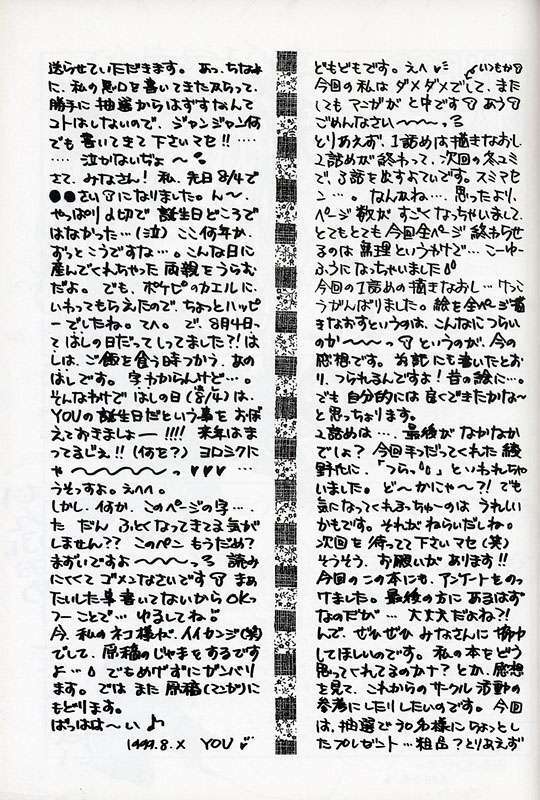 どもどです。えへ
いつもか
今回の私は ダメダメでして、また
しても マンガが と中です あう
ごめんなさい〜〜っ
とりあえず、1話めは描きなおし
2話めが 終わって、次回の冬コミ
で、3話を出すよていです。スミマセ
ン…。なんかね… 思ったより、
ページ 数が すごくなっちゃいまして
とてもとても 今回全ページ 終わらせ
るのは 無理というわけで… こーゆー
ふうになっちゃいました
今回の1話めの描きなおし…けっこ
うがんばりました。絵を全ページ描
きなおすというのは、こんなにつらい
のか〜〜っ というのが、今の
感想です。 にも書いたとお
り、つられるんですよ!昔の絵に…。
でも 自分的には 良くできたかな〜
と思っちょります。
2話めは…、最後がなかなか
でしょ? 今回手つだってくれた綾
野 に、「つらっ」といわれちゃ
いました。ど〜かにゃ〜?! でも
気になってくれるっちゅーのは うれしい
かもです。それが ねらいだしね。
次回を 待ってて 下さいマセ(笑)
そうそう、お願いが あります!!
今回の この本にも、アンケートをのっ
けました。最後の方に あるはず
なのだが … 大丈夫だよね?!
んで、ぜひぜひ みなさんに
してほしいのです。私の本をどう
思ってくれてるのかナ? とか、感想
を見て、これからのサークル活動の
参考にしたりしたいのです。今回
は、抽選で30名様にちょっとし
たプレゼント … 粗品?とりあえず
送らせていただきます。あっ、ちなみ
に、私の悪口を書いてきたからって、
勝手に 抽選からはずすなんて
コトはしないので、ジャンジャン何
でも 書いてきて 下さいマセ!! …
…… 泣かないぢょ 〜
さて、みなさん! 私、先日 8/4で
●●さい になりました。ん〜、
やっぱり〆切で 誕生日どころで
はなかった…(泣) ここ何年か、
ずっとこうですな…。こんな日に
産んでくれちゃった 両親をうらむ
だよ。でも、ポケピのカエルに、
いわってもらえたので、ちょっとハッピ
ーでしたね。てへ。で、8月4日っ
て はしの日だってしってました?! は
しは、ご飯を食う時つかう、あの
はしです。字わからんけど…。
そんなわけで はしの日(8/4)は、
YOUの誕生日だという事を おぼ
えておきましょー!!!! 来年はま
ってるじぇ!! (何を?) ヨロシクに
ゃ〜〜〜〜っ ♥♥♥ …
うそっすよ。えへへ。
しかし、何か、このページの字…
た だん ふとくなってきてる 気が
しません?? このペン もうだめ?
まずいですよ〜〜〜っ 読み
にくくて ゴメンなさいです まぁ
たいした事書いてないから OKっ
つーことで… ゆるしてね
今、私のネコ様が、イイカンジ(笑)
でして、原稿のじゃまをするです
よ… でもめげずにガンバリ
ます。では また 原稿(マンガ)に
もどります。
ばっはは〜い ♪
1999.8.X YOU